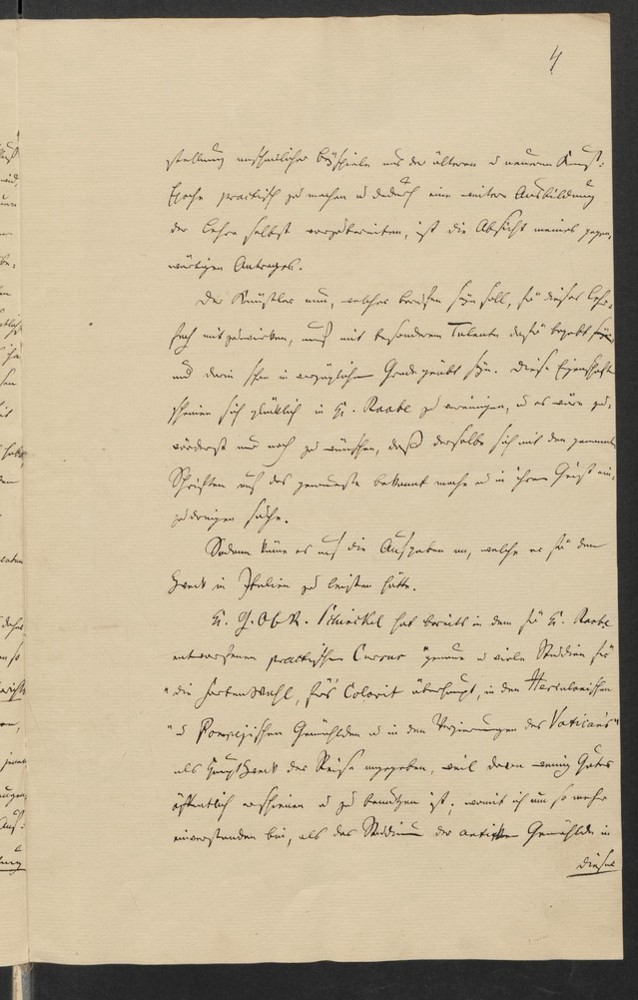 4
stellung anschaulicher Beÿspiele aus der älteren u neueren Kunst-
Epoche practisch zu machen u dadurch eine weitere Ausbildung
der Lehre selbst vorzubereiten, ist die Absicht meines gegen-
wärtigen Antrages.
Der Künstler nun, welcher berufen seÿn soll, für dieses Lehr-
fach mitzuwirken, muß mit besonderem Talente dafür begabt seÿn
und darin schon in vorzüglichem Grade geübt seÿn. Diese Eigenschaften
scheinen sich glücklich in H. Raabe zu vereinigen, u es wäre zu-
vörderst nur noch zu wünschen, daß derselbe sich mit den genannten
Schriften auf das genaueste bekannt mache u in ihren Geist ein-
zudringen suche.
Sodann käme es auf die Aufgaben an, welche er für den
Zweck in Italien zu leisten hätte.
H. G. Ob. R. Schinckel hat bereits in dem für H. Raabe
entworfenen practischen Cursus "genaue u viele Studien für
"die Farbenwahl, für's Colorit überhaupt, in den Herculanischen
"u Pompejischen Gemählden u in den Verzierungen des Vaticans"
als Hauptzweck der Reise angegeben, weil davon wenig Gutes
öffentlich erschienen u zu benutzen ist; womit ich um so mehr
einverstanden bin, als das Studium der antiken Gemählde in
dieser